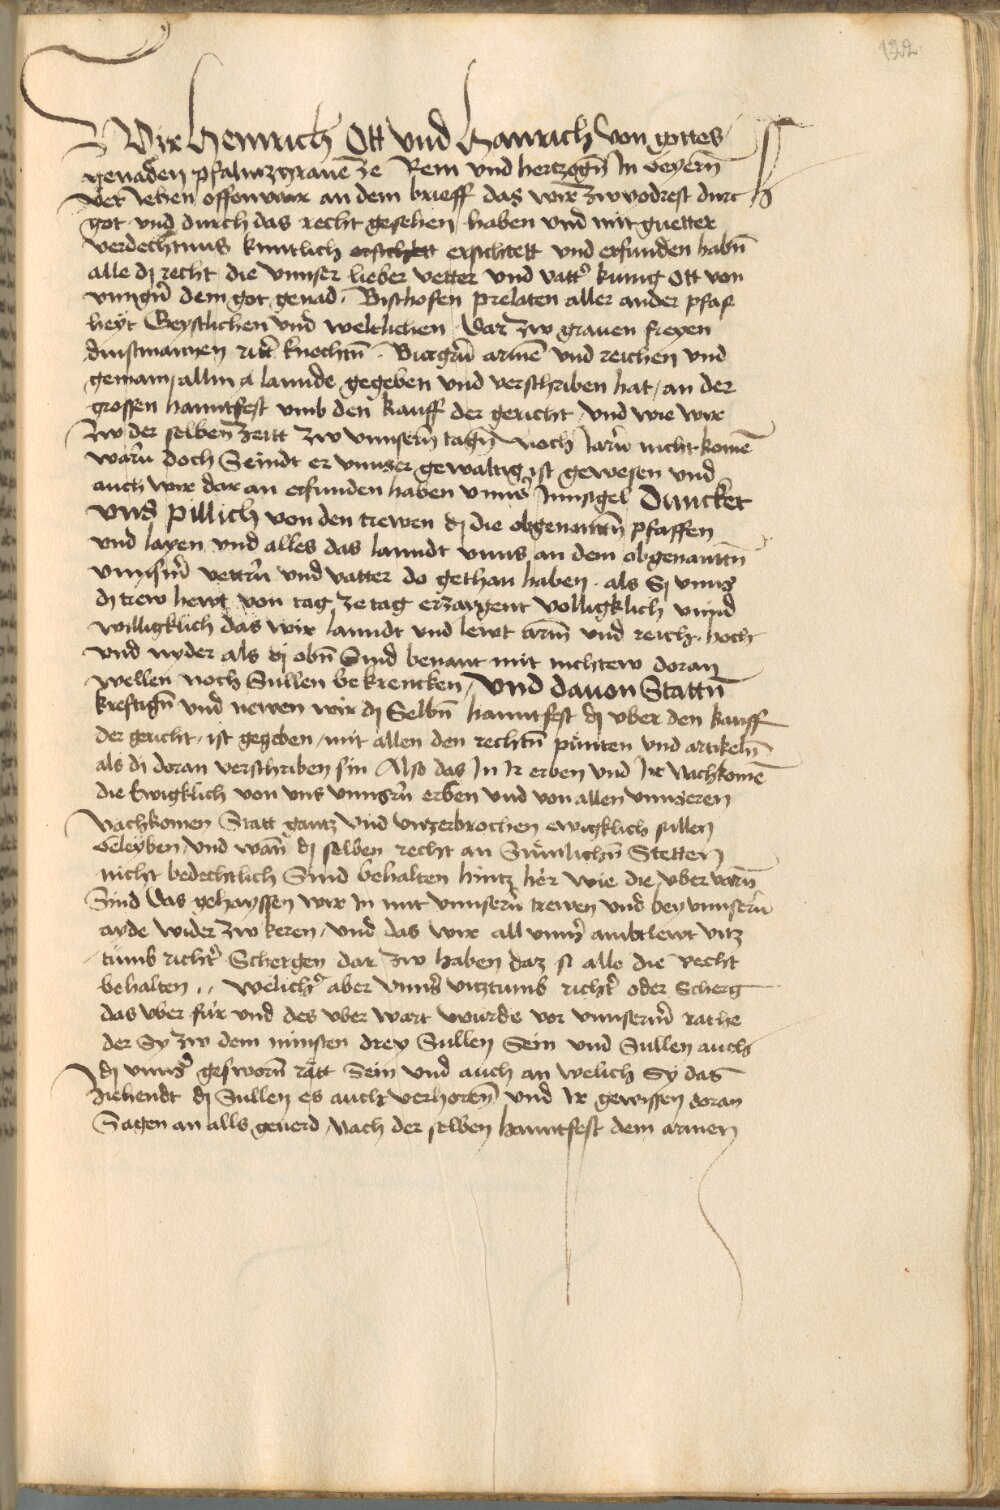 122
Wir Heinrich Ott vnd Hainrich von gottes
genaden pfaltnzgrauen ze Rein vnd hertzogn̄ In Beyern̄
Veriehen offenwar an dem brieff das wir zwvodrest durc
got vnd durch das recht gesehen haben vnd mit guetter
verdechtnus kuntlich ersichtett vnd erfunden habn̄
alle dj recht die vnnser lieber vetter vnd vatt̓ kunig Ott von
vnngern̄ dem got genad . Bischofen prelaten aller ander pfaf
heyt Geystlichen vnd weltlichen Dar zw grauen freyen
dinstmannen ritt̓ knechtn̄ . Burgern̄ armen̄ vnd reichen vnd
gemain allm̄ lannde gegeben vnd verschriben hat / an der
grossen hanntfest vmb den kauff der gericht / vnd wie wir
Zw der selben zeitt zw vnnsern̄ tagn̄ noch Jarn̄ nicht komen̄
warn̄ doch Seindt er vnnser gewaltig ist gewesen vnd
auch wir dar an erfunden haben vnns̓ Innsigel Duncket
vns pillich von den trewen dj die obgenantn̄ pfaffen
vnd layen vnd alles das lanndt vnns an dem obgenanttn̄
vnnsm̄ vettern̄ vnd vatter do gethan haben . als Sj vnns
dj trew hewt von tag ze tag erzaigent volligklich vnnd
willigklich das wir lanndt vnd lewt arm̄ vnd reich hoch
vnd nyder als dj obn̄ Sind benant mit nichtew doran
wellen noch Sullen bekrencken / Vnd dauon Stattn̄
kreftign̄ vnd newen wir dj Selbn̄ hanntfest dj vber den kauff
der gericht / ist gegeben / mit allen den rechtn̄ puntten vnd artikeln̄
als di doran verschriben sin Also das In Ir erben vnd Ir Nachkomen̄
die Ewigklich von vns vnnsern̄ erben vnd von allen vnnseren
Nachkomen Statt gantz vnd vnzerbrochen ewigklich sullen
beleyben / Vnd wan̄ dj selben recht an Sumlichn̄ Stetten
nicht bedechtlich Sind behalten hintz her wie die vber varn̄
Sind das gehayssen wir In mit vnnsern̄ trewen vnd bey vnnsern̄
ayde wider zw keren / vnd das wir all vnns̓ ambtlewt vitz
tumb richt̓ Schergen dar zw haben daz si alle die recht
behalten .. welich̓ aber vnns̓ vitztumb richt̓ oder Scherg
das vber für vnd des vber wart wurde vor vnnserm̄ rathe
der Sy zw dem minsten drey Sullen Sein vnd Sullen auch
dj vnns̓ gesworn̄ rätt Sein vnd auch an welich Sy das
Ziehendt dj Sullen es auch verhoren̄ vnd Ir gewissen doran
Sagen an alls geuerd Nach der selben hanntfest dem armen